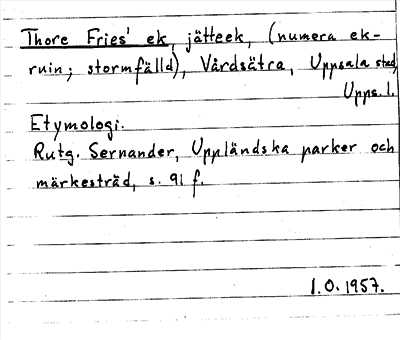 Thore Fries' ek, jätteek, (numera ek-
ruin; stormfälld), Vårdsätra, Uppsala stad,
Upps. l.
Etymologi.
Rutg. Sernander, Uppländska parker och
märkesträd, s. 91 f.
I.O. 1957.